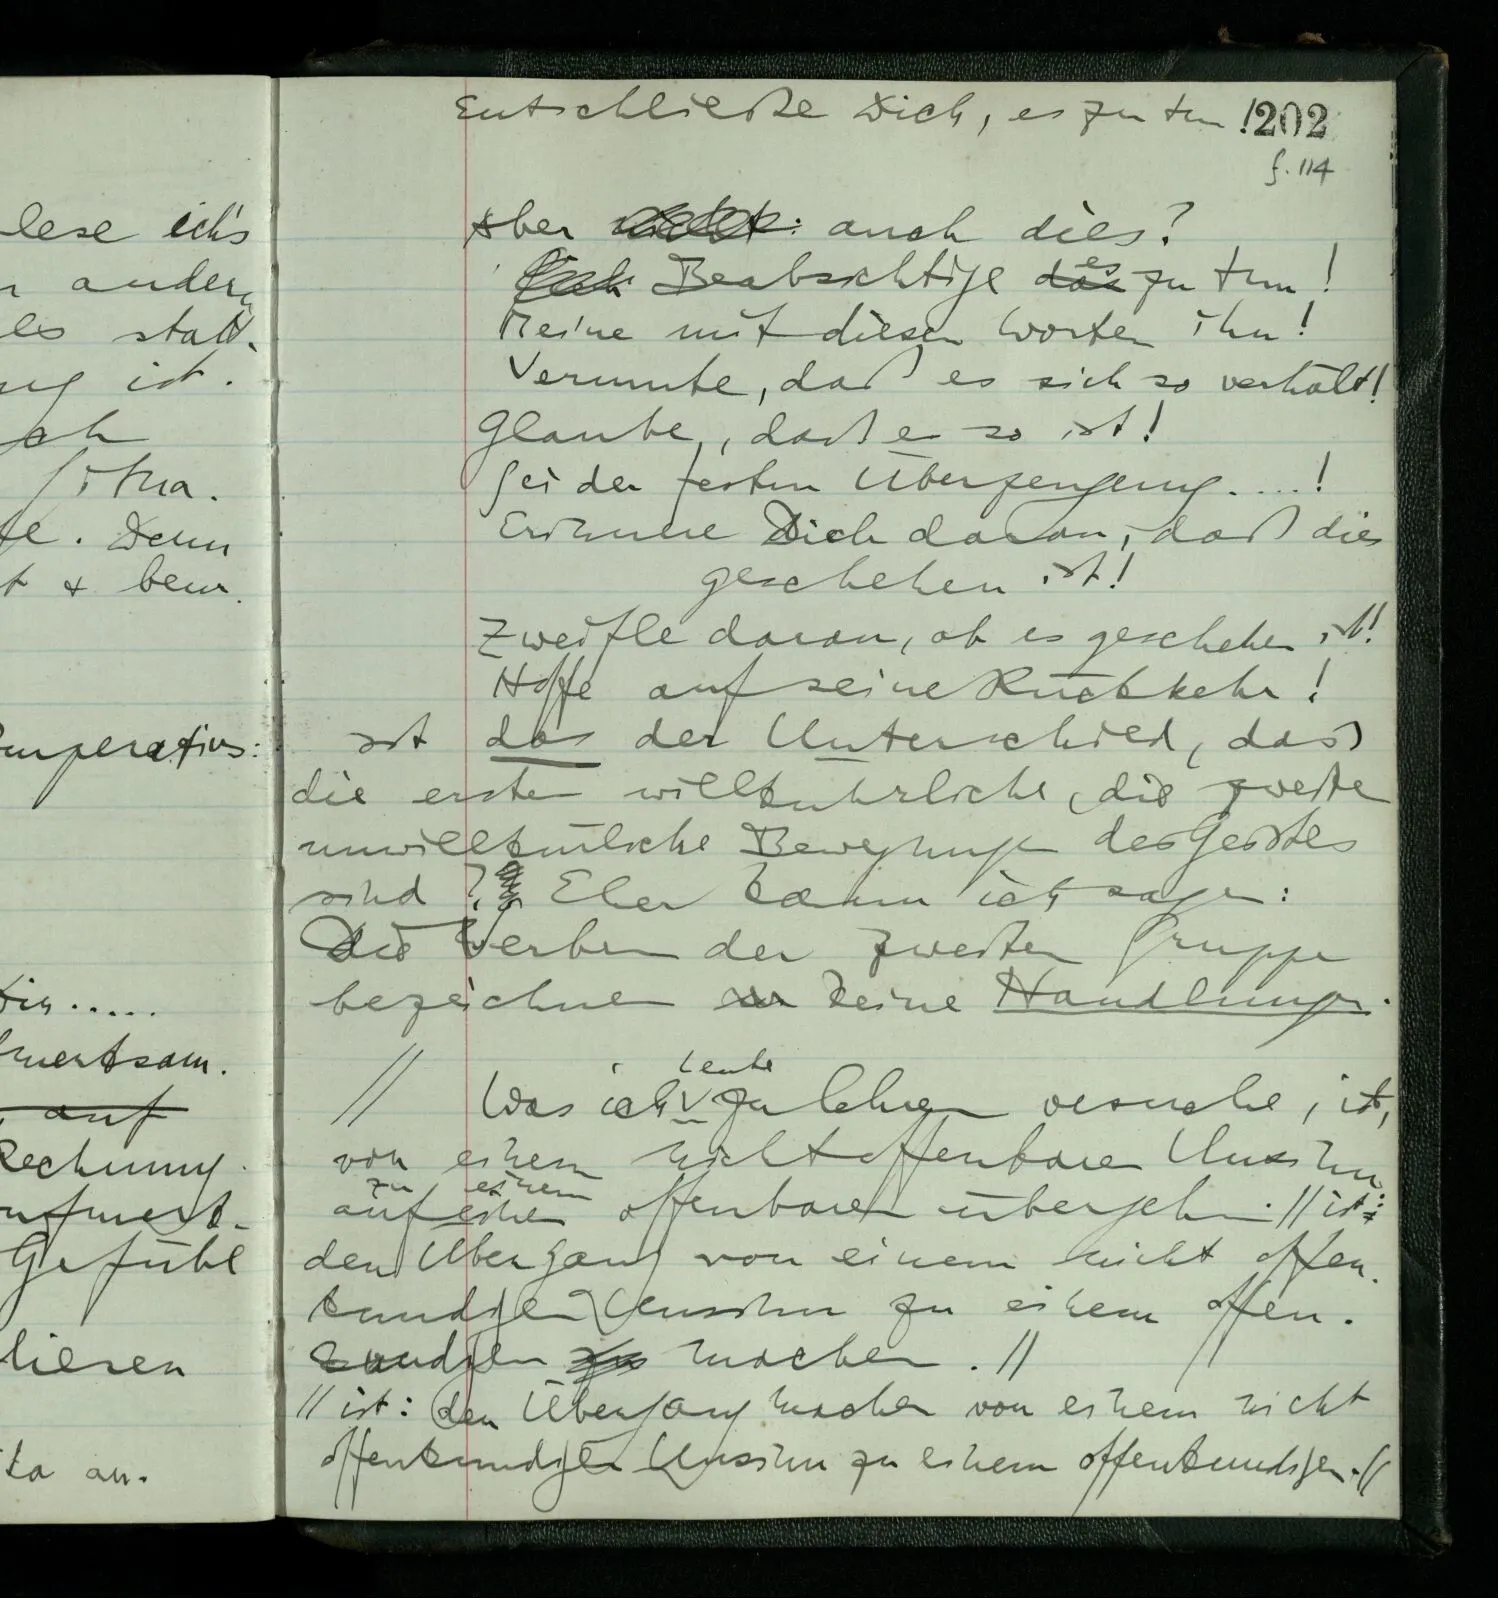 lese ich's
andern
es statt-
ist.
Denn
Imperativs:
Dir.....
merksam.
auf
Rechnung
aufmerk-
Gefühl
an.
Entschließe Dich, es zu tun!
202
f. 114
Aber nicht: auch dies?
Beabsichtige das es zu tun!
Meine mit diesen Worten ihn!
Vermute, daß es sich so verhält!
Glaube, daß es so ist!
Sei der festen Überzeugung....!
Erinnere Dich daran, daß dies
geschehen ist!
Zweifle daran, ob es geschehen ist!
Hoffe auf seine Rückkehr!
Ist das der Unterschied, daß
die ersten willkührliche, die zweiten
unwillkürliche Bewegungen des Geistes
sind? Eher kann ich sagen:
Die Verben der zweiten Gruppe
bezeichnen keine Handlungen.
// Was ich Leute zu lehren versuche, ist,
von einem nicht offenbaren Unsinn
auf einen zu einem offenbaren übergehn. // ist:
den Übergang von einem nicht offen-
kundigen Unsinn zu einem offen-
kundigen zu machen. //
// ist: den Übergang machen von einem nicht
offenkundigen Unsinn zu einem offenkundigen. //